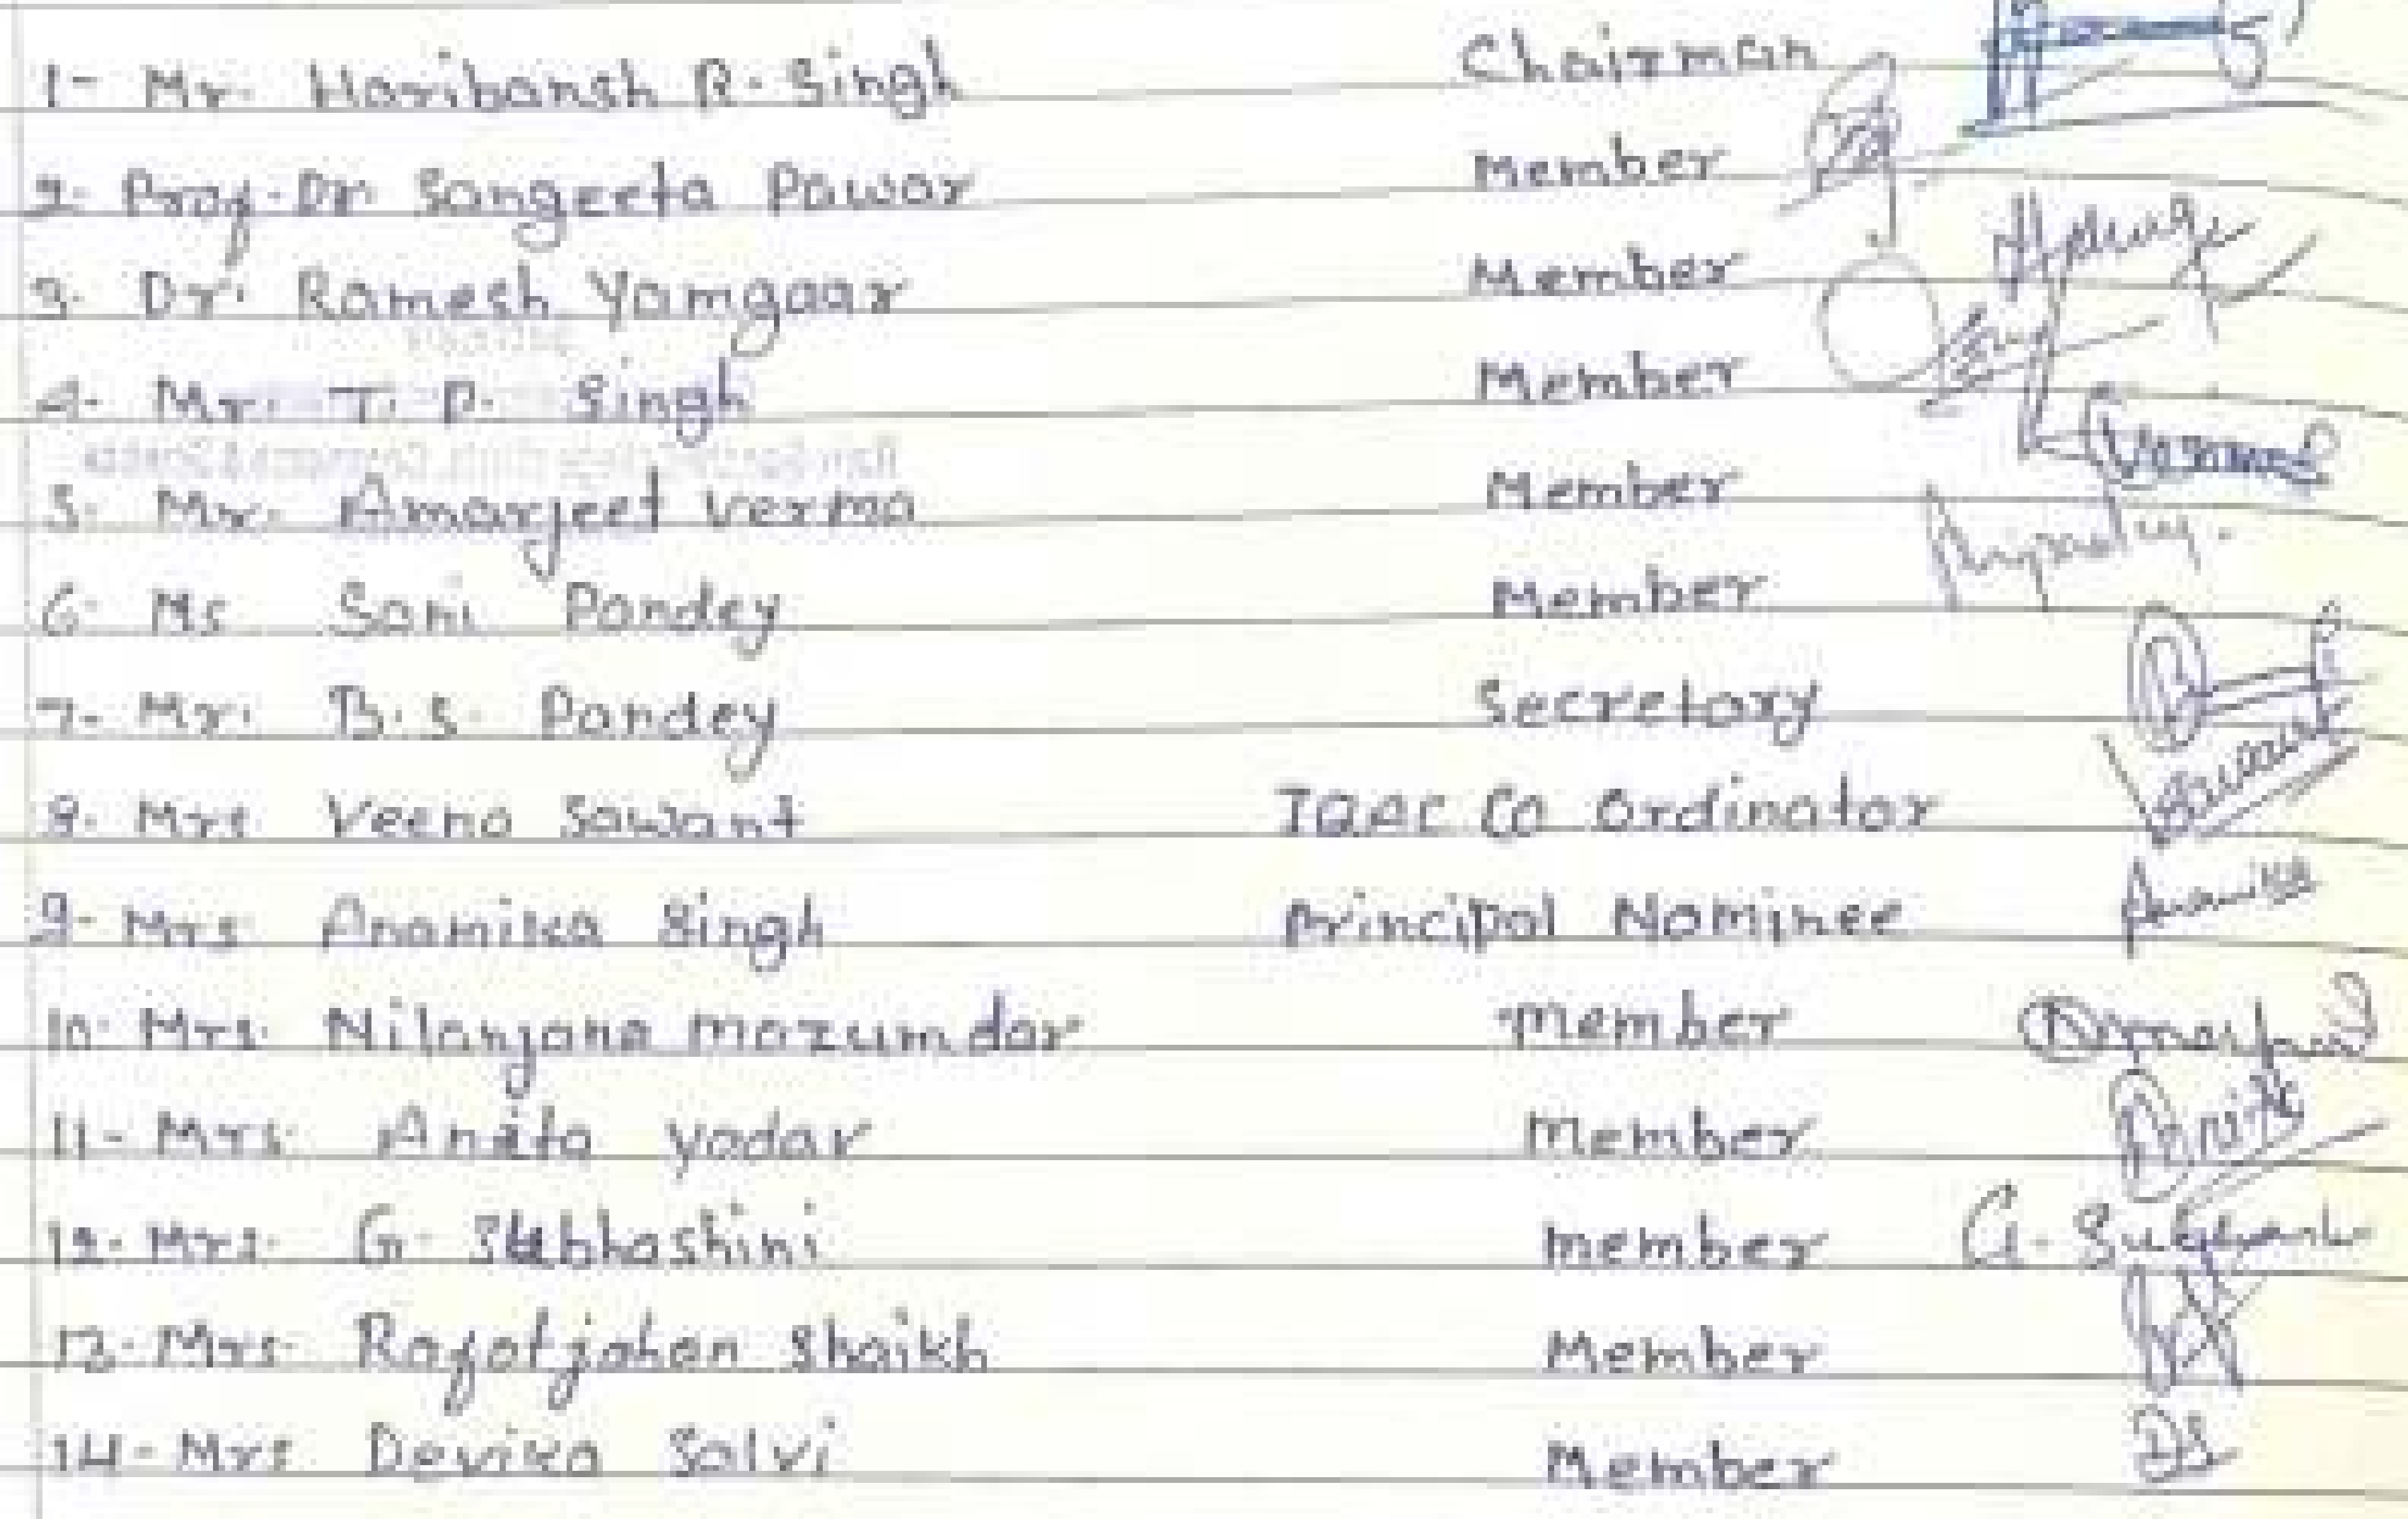 1- Mr. Haribansh R. Singh Chairman
2- Prof. Dr. Sangeeta Pawar Member
3- Dr. Ramesh Yamgaar Member
4- Mr. T. P. Singh Member
5- Mr. Amarjeet Verma Member
6- Ms Soni Pandey Member
7- Mr. B. S. Pandey Secretary
8- Mrs Veena Sawant IQAC Co Ordinator
9- Mrs Anamika Singh Principal Nominee Anamika
10- Mrs. Nilanjana Mozumdar Member
11- Mrs. Anita Yadav Member Anita
12- Mrs. G. Subhashini Member
13- Mrs. Shaikh Member
14- Mrs Devika Salvi Member DS